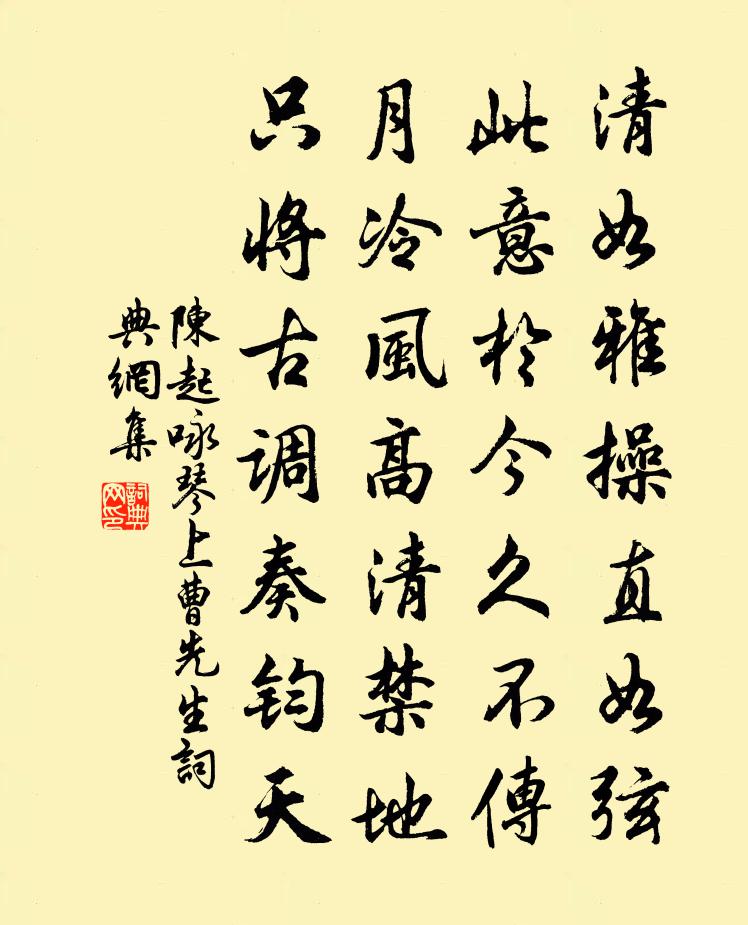 清如雅操直如弦
此意於今久不傳
月冷風高清禁地
只将古调奏钧天
陳起咏琴上曹先生詞
典網集
詞典
网印